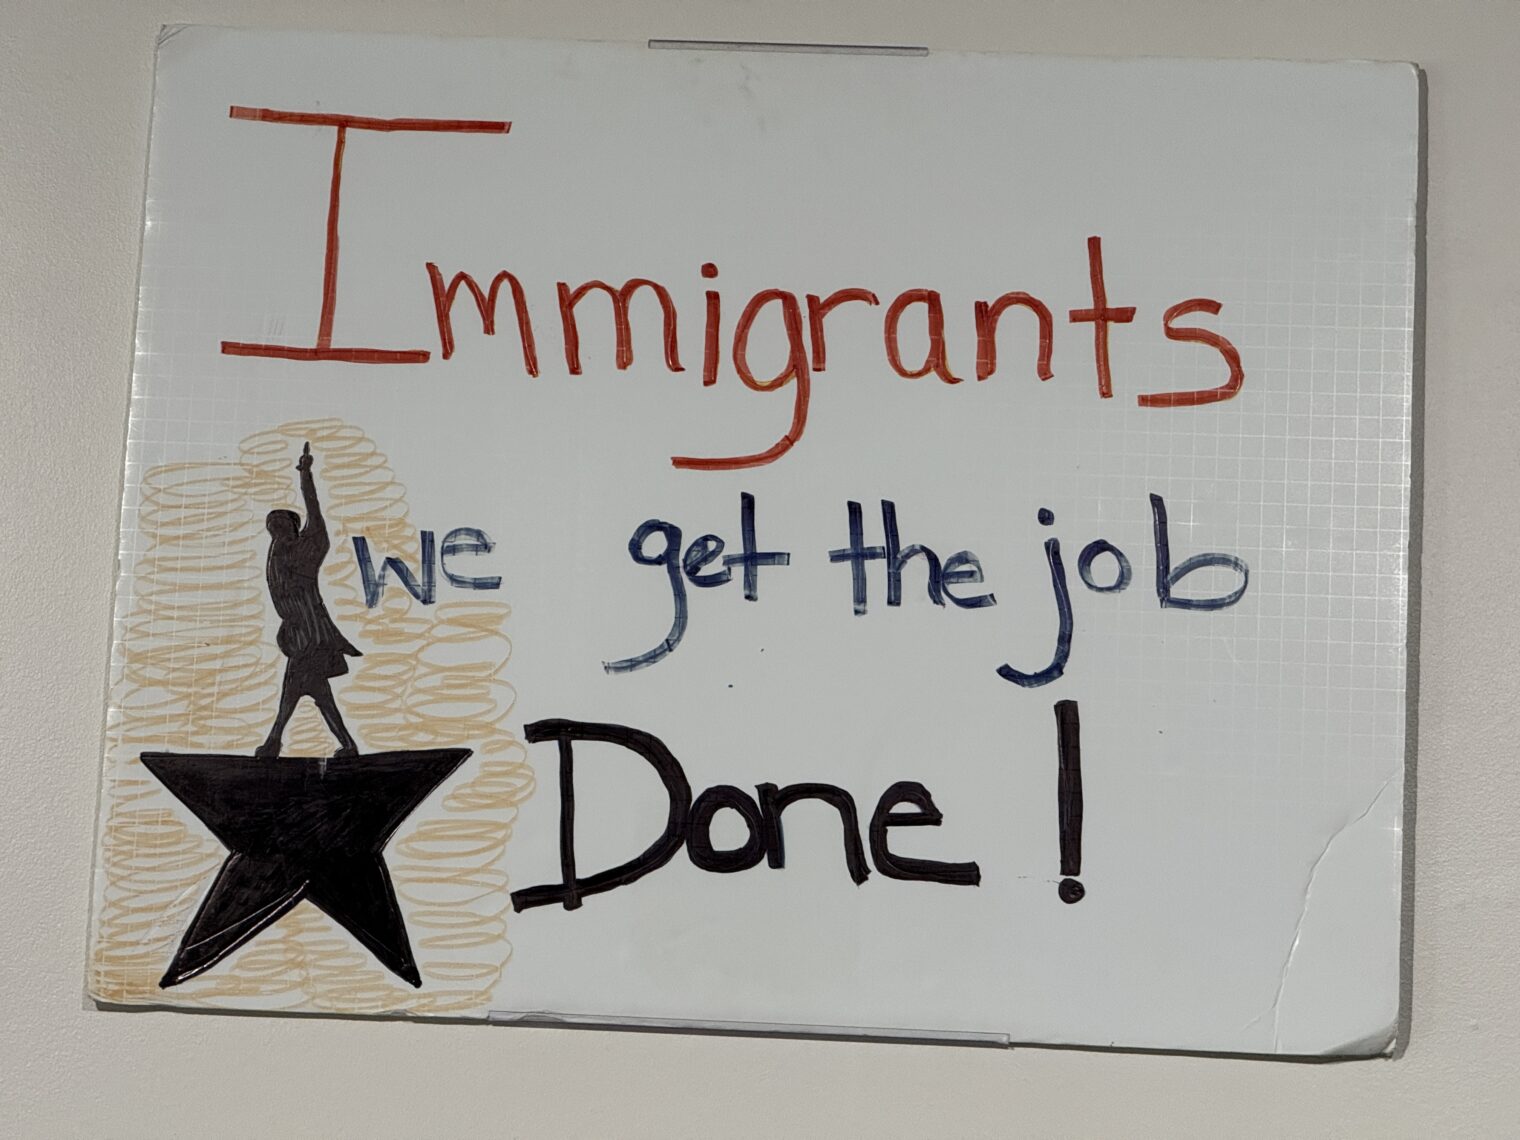 Immigrants
we get the job
Done!